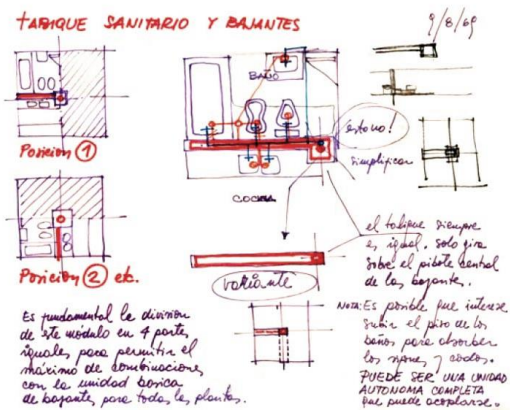 TABIQUE SANITARIO Y BAJANTES
9/8/69
BAÑO
esto no!
simplificar
Posicion 1
COCINA
Posicion 2 etc.
variante
el tabique siempre
es igual. solo gira
sobre el pibote central
de las bajantes.
NOTA: Es posible que interese
subir el piso de los
baños para absorber
los sifones y codos.
PUEDE SER UNA UNIDAD
AUTONOMA COMPLETA
que puede acoplarse.
Es fundamental la division
de este modulo en 4 partes
iguales para permitir el
máximo de combinaciones
con la unidad basica
de bajantes para todas las plantas.